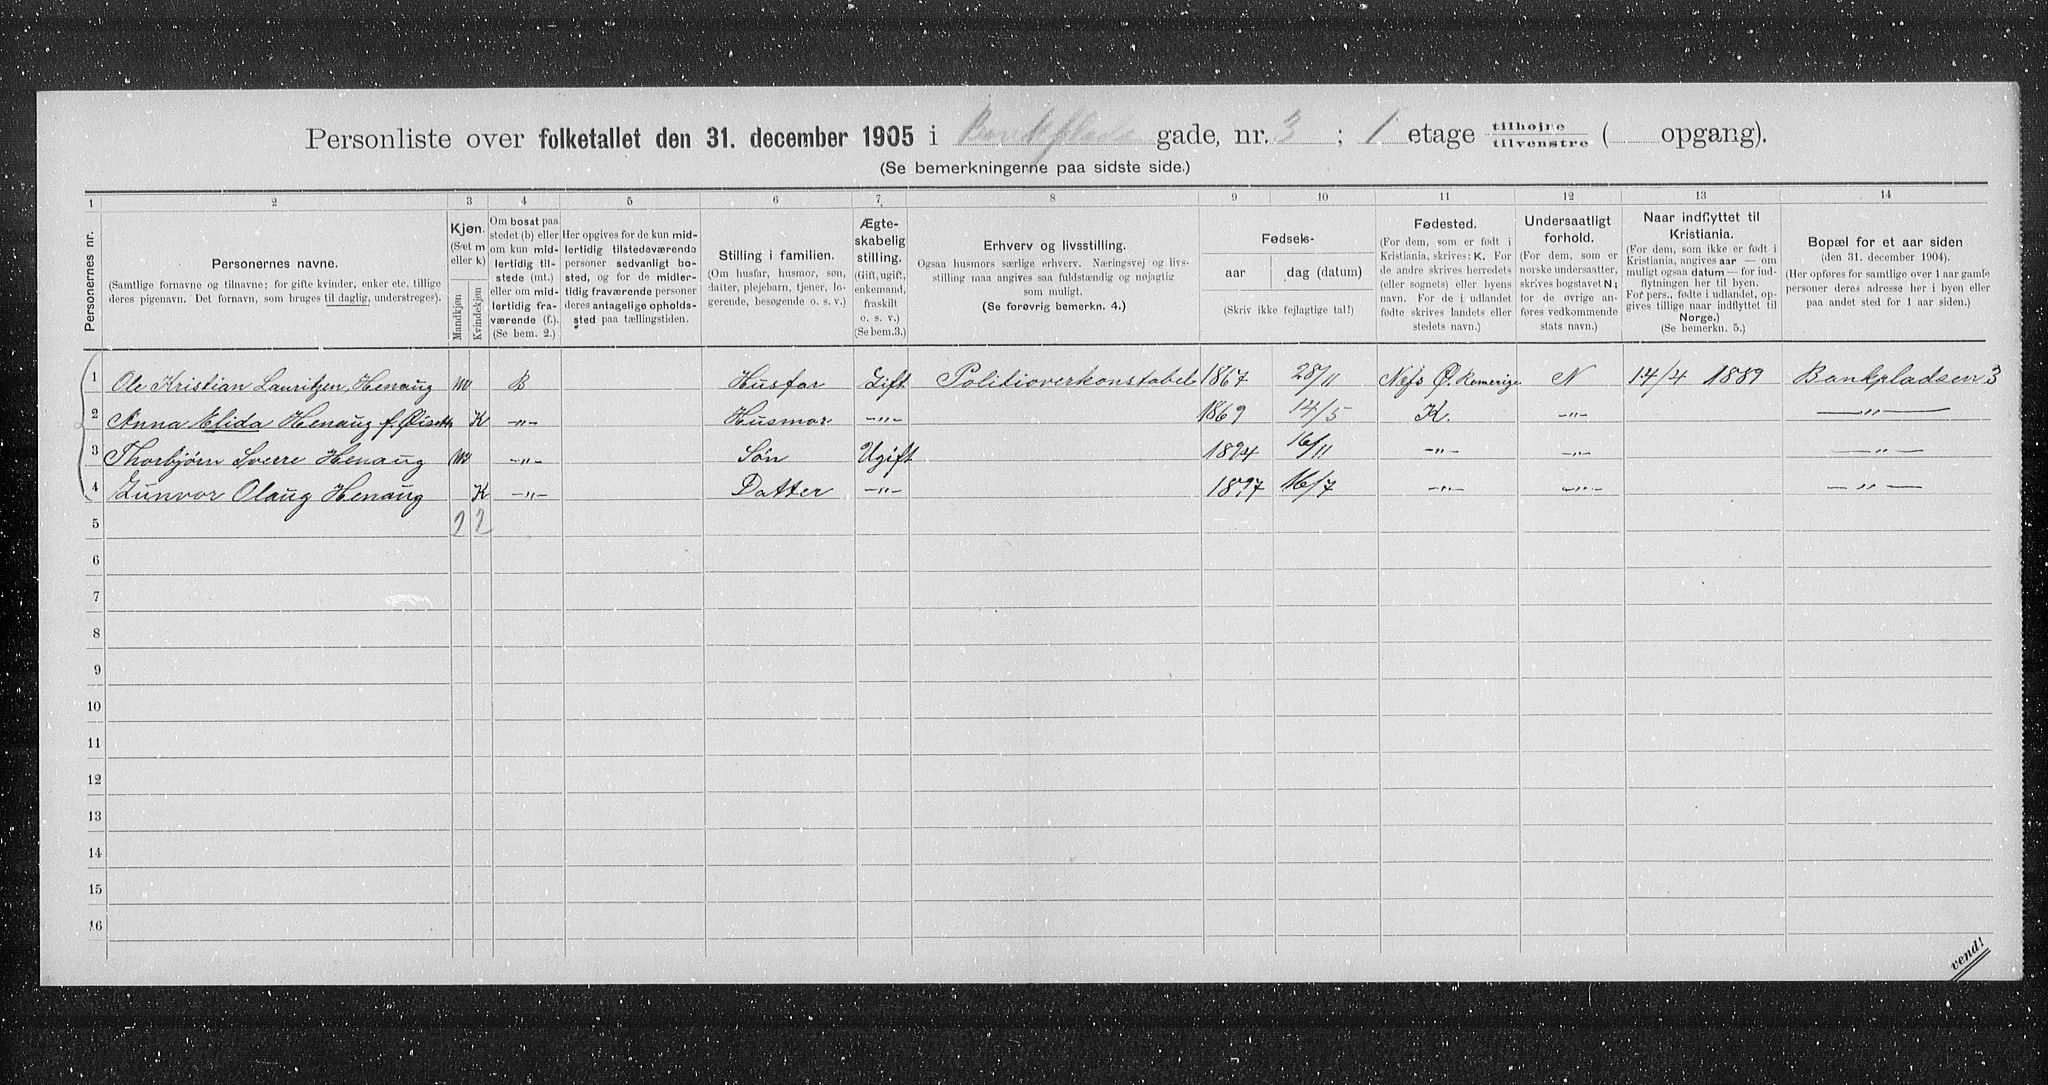 Personliste over folketallet den 31. december 1905 i Bankplads gade, nr. 3 ; 1 etage tilhøjre tilvenstre ( opgang).
(Se bemerkningerne paa sidste side.)
1 2 3 4 5 6 7. 8 9 10 11 12 13 14
Personernes nr.
Personernes navne.
(Samtlige fornavne og tilnavne; for gifte kvinder, enker etc. tillige
deres pigenavn. Det fornavn, som bruges til daglig, understreges).
Kjøn.
(Sæt m
eller k)
Mandkjøn
Kvindekjøn
Om bosat paa
stedet (b) eller
om kun mid-
lertidig til-
stede (mt.)
eller om mid-
lertidig fra-
værende (f.).
(Se bem. 2.)
Her opgives for de kun mid-
lertidig tilstedeværende
personer sedvanligt bo-
sted, og for de midler-
tidig fraværende personer
deres antagelige opholds-
sted paa tællingstiden.
Stilling i familien.
(Om husfar, husmor, søn,
datter, plejebarn, tjener, lo-
gerende, besøgende o. s. v.)
Ægte-
skabelig
stilling.
(Gift, ugift,
enkemand,
fraskilt
o. s. v.)
(Se bem. 3.)
Erhverv og livsstilling.
Ogsaa husmors særlige erhverv. Næringsvej og livs-
stilling maa angives saa fuldstændig og nøjagtig
som muligt.
(Se forøvrig bemerkn. 4.)
Fødsels-
aar dag (datum)
(Skriv ikke fejlagtige tal!)
Fødested.
(For dem, som er født i
Kristiania, skrives: K. For
de andre skrives herredets
(eller sognets) eller byens
navn. For de i udlandet
fødte skrives landets eller
stedets navn.)
Undersaatligt
forhold.
(For dem, som er
norske undersaatter,
skrives bogstavet N;
for de øvrige an-
føres vedkommende
stats navn.)
Naar indflyttet til
Kristiania.
(For dem, som ikke er født i
Kristiania, angives aar — om
muligt ogsaa datum — for ind-
flytningen her til byen.
For pers., fødte i udlandet, op-
gives tillige naar indflyttet til
Norge.)
(Se bemerkn. 5.)
Bopæl for et aar siden
(den 31. december 1904).
(Her opføres for samtlige over 1 aar gamle
personer deres adresse her i byen eller
paa andet sted for 1 aar siden.)
1 Ole Kristian Lauritzen Henaug m B Husfar Gift Politioverkonstabel 1867 28/11 Nes Ø. Romerige N 14/4 1889 Bankpladsen 3
2 Anna Elida Henaug f. K -„- Husmor -„- 1869 14/5 K. -„- -„-
3 Thorbjørn Sverre Henaug m -„- Søn Ugift 1894 16/11 -„- -„- -„-
4 Gunvor Olaug Henaug K -„- Datter -„- 1897 16/7 -„- -„- -„-
5 2 2
6
7
8
9
10
11
12
13
14
15
16
vend!